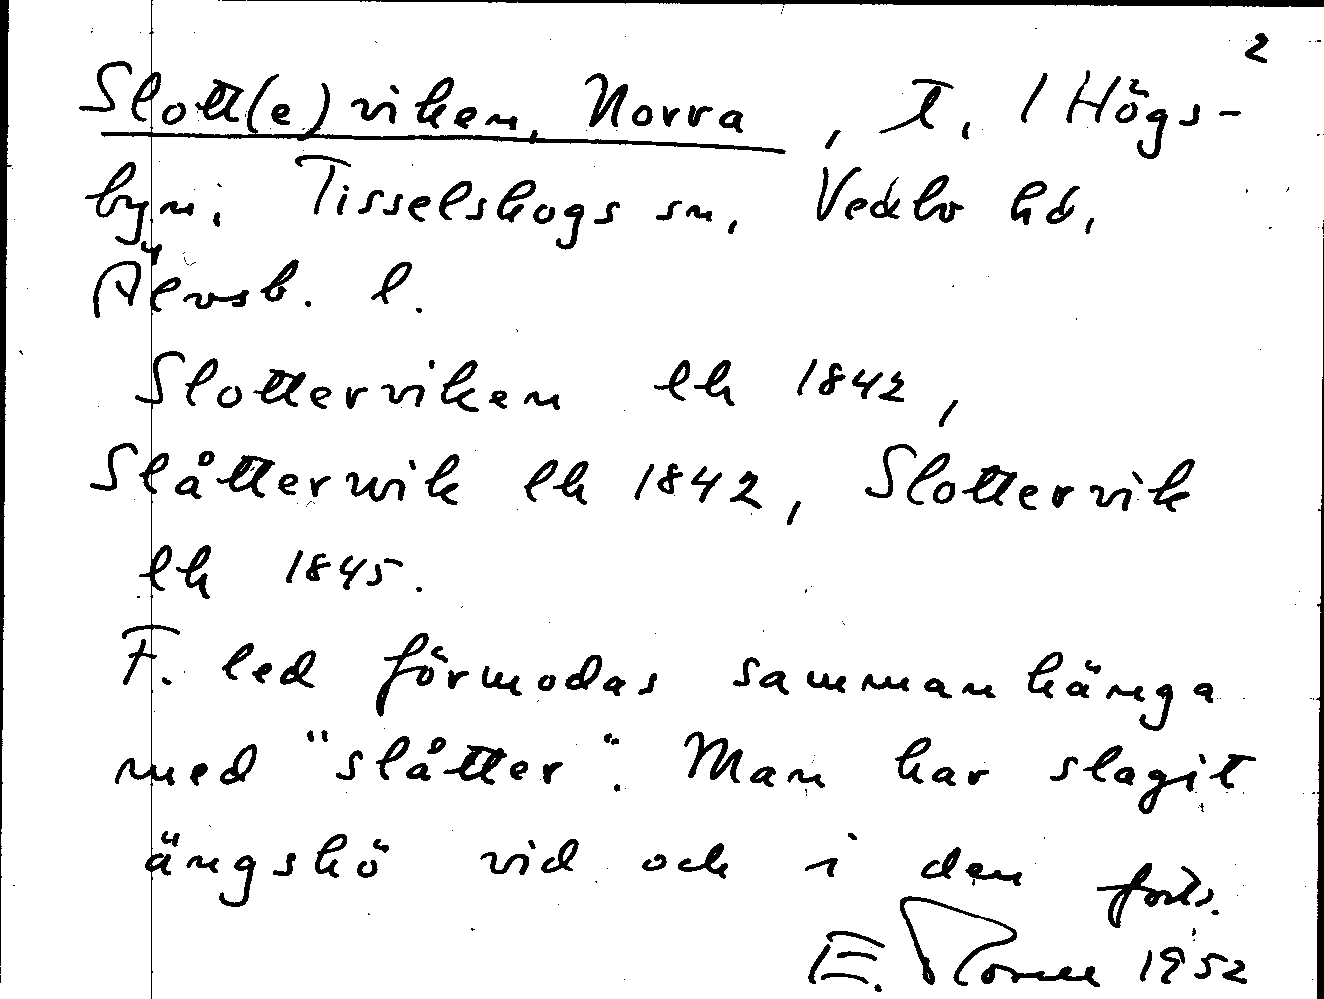 2
Slott(e)viken, Norra, t. / Högs-
byn, Tisselskogs sn, Vedbo hd,
Älvsb. l.
Slotterviken lh 1842,
Slåtterwik lh 1842, Slottervik
lh 1845.
F. led förmodas sammanhänga
med "slåtter". Man har slagit
ängshö vid och i den forts.
E. 1952